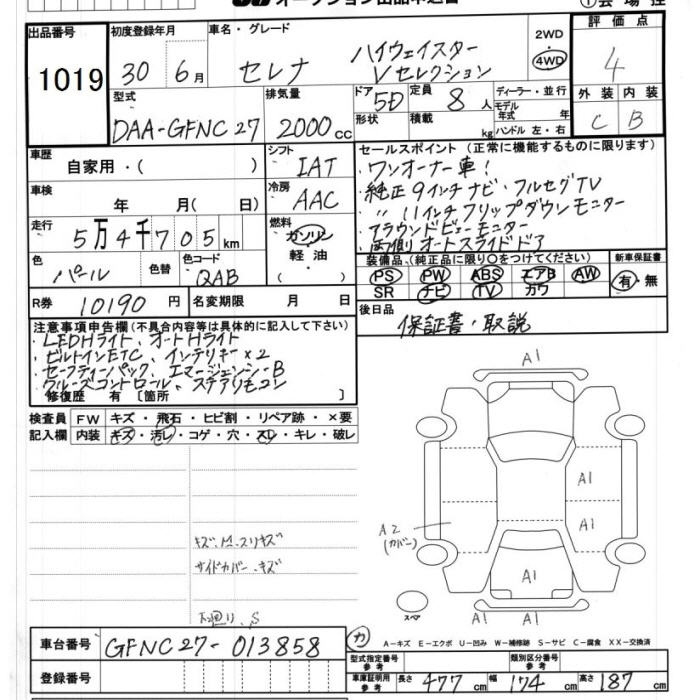 オークション出品申込書
①会場控
出品番号 1019
初度登録年月 30年 6月
車名・グレード セレナ ハイウェイスター Vセレクション
2WD 4WD
評価点 4
型式 DAA-GFNC27
排気量 2000cc
ドア 5D 形状
定員 8人 積載 kg
ディーラー・並行
モデル年式 年
ハンドル 左・右
外装 C 内装 B
車歴 自家用・( )
シフト IAT
車検 年 月( 日)
冷房 AAC
走行 5万4千705km
燃料 ガソリン 軽油 ( )
色 パール 色替 色コード QAB
R券 10190円 名変期限 月 日
セールスポイント(正常に機能するものに限ります)
・ワンオーナー車!
・純正9インチナビ・フルセグTV
・〃11インチフリップダウンモニター
・アラウンドビューモニター
・両側オートスライドドア
装備品(純正品に限り○をつけてください) 新車保証書
PS PW ABS エアB AW 有・無
SR ナビ TV カワ
後日品 保証書・取説
注意事項申告欄(不具合内容等は具体的に記入して下さい)
・LEDHライト、オートHライト
・ビルトインETC、インテリキー×2
・セーフティーパック、エマージェンシーB
・クルーズコントロール、ステアリモコン
修復歴 有 [箇所 ]
検査員 FW キズ・飛石・ヒビ割・リペア跡・×要
記入欄 内装 キズ・汚レ・コゲ・穴・スレ・キレ・破レ
A1
A1
A1
A2
(カバー)
キズ、M、スリキズ
サイドカバー、キズ
下廻り、S
A1
スペア
A1 A1
車台番号 GFNC27-013858
カ
A-キズ E-エクボ U-凹み W-補修跡 S-サビ C-腐食 XX-交換済
型式指定番号 参考 類別区分番号 参考
登録番号
車庫証明用 参考 長さ 477cm 幅 174cm 高さ 187cm